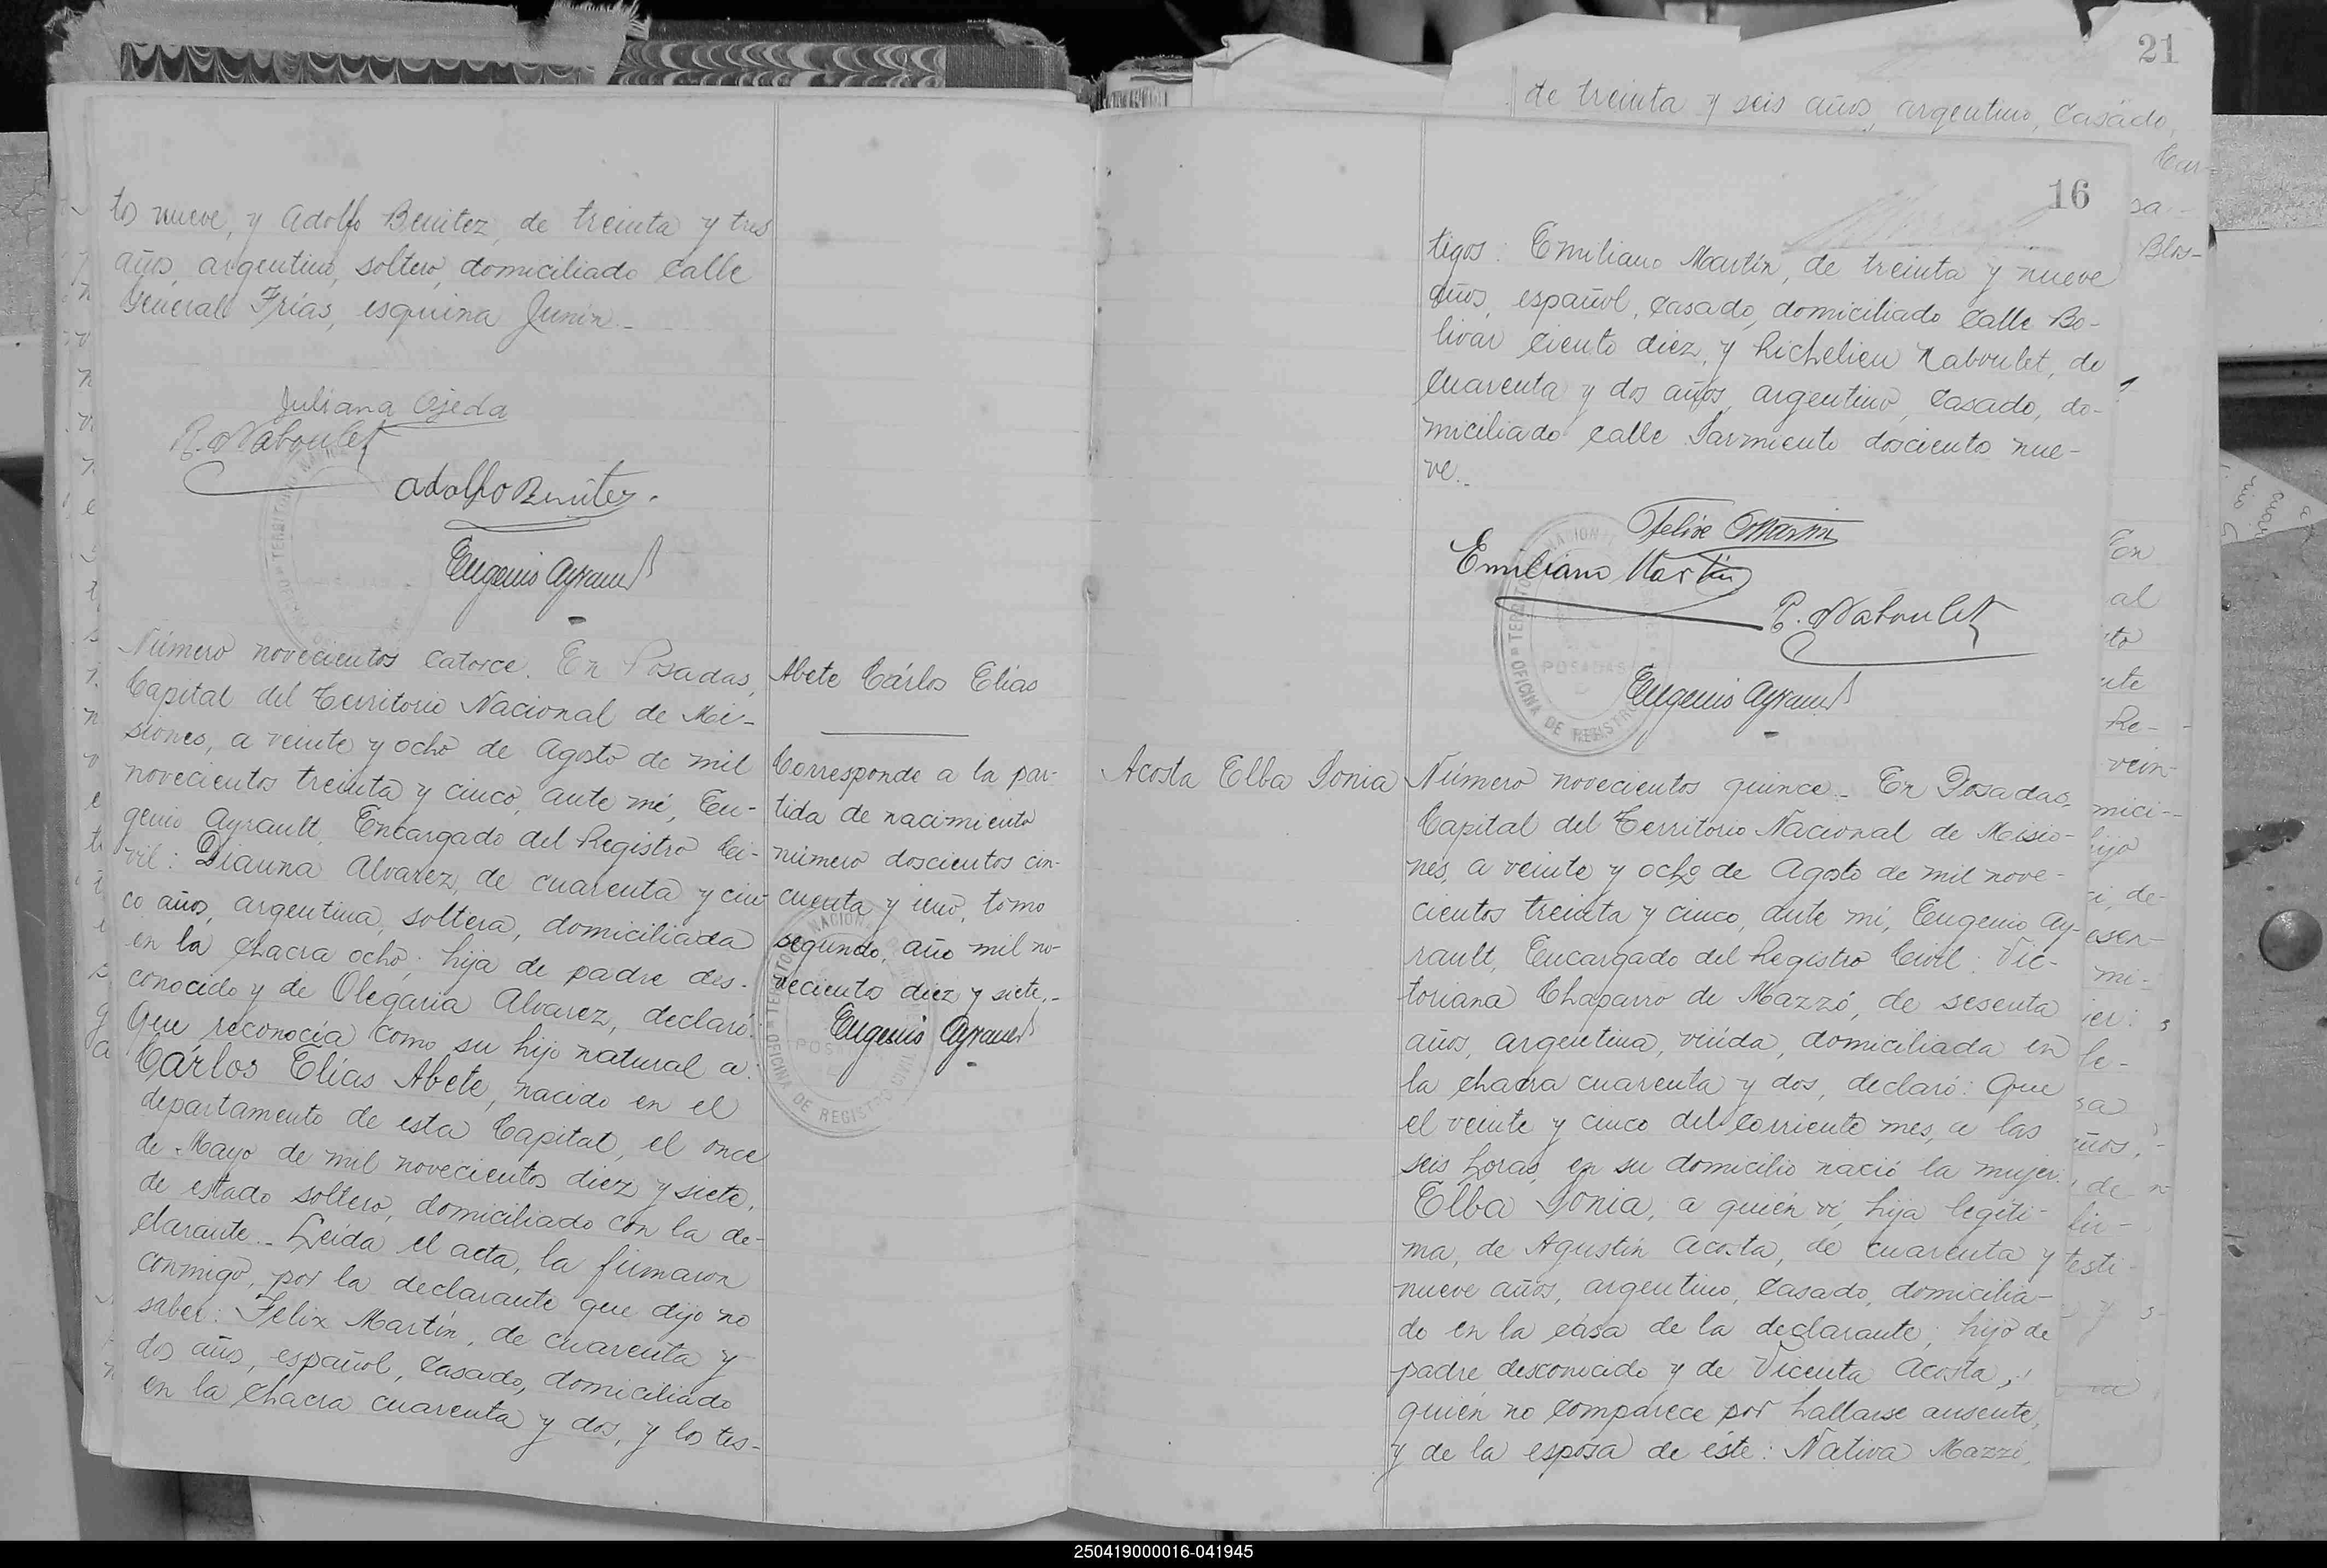 tos nueve, y Adolfo Benitez, de treinta y tres
años, argentino, soltero, domiciliado calle
General Frías, esquina Junín.-
Juliana Ojeda
R. Naboulet
Adolfo Benitez.
Eugenio Ayrault
Número novecientos catorce. En Posadas,
Capital del Territorio Nacional de Mi-
siones, a veinte y ocho de Agosto de mil
novecientos treinta y cinco, ante mí, Eu-
genio Ayrault, Encargado del Registro Ci-
vil: Dianna Alvarez, de cuarenta y cin-
co años, argentina, soltera, domiciliada
en la chacra ocho; hija de padre des-
conocido y de Olegaria Alvarez, declaró:
Que reconocía como su hijo natural a:
Cárlos Elías Abete, nacido en el
departamento de esta Capital, el once
de Mayo de mil novecientos diez y siete,
de estado soltero, domiciliado con la de-
clarante.- Leída el acta, la firmaron
conmigo, por la declarante que dijo no
saber: Felix Martín, de cuarenta y
dos años, español, casado, domiciliado
en la chacra cuarenta y dos, y los tes-
Abete Cárlos Elías
Corresponde a la par-
tida de nacimiento
número doscientos cin-
cuenta y uno, tomo
segundo, año mil no-
vecientos diez y siete.-
Eugenio Ayrault
21
de treinta y seis años, argentino, casado,
16
tigos: Emiliano Martín, de treinta y nueve
años, español, casado, domiciliado calle Bo-
livar ciento diez, y Richelieu Naboulet, de
cuarenta y dos años, argentino, casado, do-
miciliado calle Sarmiento doscientos nue-
ve.-
Felix Martin
Emiliano Martin
R. Naboulet
OFICINA DE REGISTRO
POSADAS
Eugenio Ayrault
Acosta Elba Sonia
Número novecientos quince.- En Posadas,
Capital del Territorio Nacional de Misio-
nes, a veinte y ocho de Agosto de mil nove-
cientos treinta y cinco, ante mí, Eugenio Ay-
rault, Encargado del Registro Civil: Vic-
toriana Chaparro de Mazzó, de sesenta
años, argentina, viúda, domiciliada en
la chacra cuarenta y dos, declaró: Que
el veinte y cinco del corriente mes, a las
seis horas, en su domicilio nació la mujer:
Elba Sonia, a quién ví, hija legíti-
ma, de Agustín Acosta, de cuarenta y
nueve años, argentino, casado, domicilia-
do en la casa de la declarante; hijo de
padre desconocido y de Vicenta Acosta,
quién no comparece por hallarse ausente,
y de la esposa de éste: Nativa Mazzó,
250419000016-041945